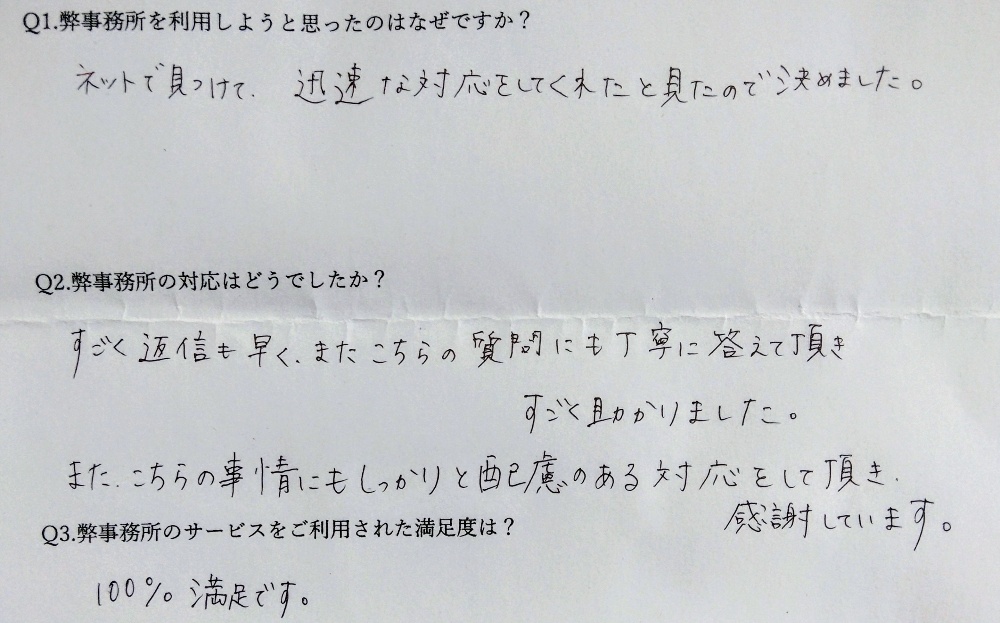 Q1.弊事務所を利用しようと思ったのはなぜですか？
ネットで見つけて、迅速な対応をしてくれたと見たので決めました。
Q2.弊事務所の対応はどうでしたか？
すごく返信も早く、またこちらの質問にも丁寧に答えて頂き
すごく助かりました。
また、こちらの事情にもしっかりと配慮のある対応をして頂き、
感謝しています。
Q3.弊事務所のサービスをご利用された満足度は？
100% 満足です。